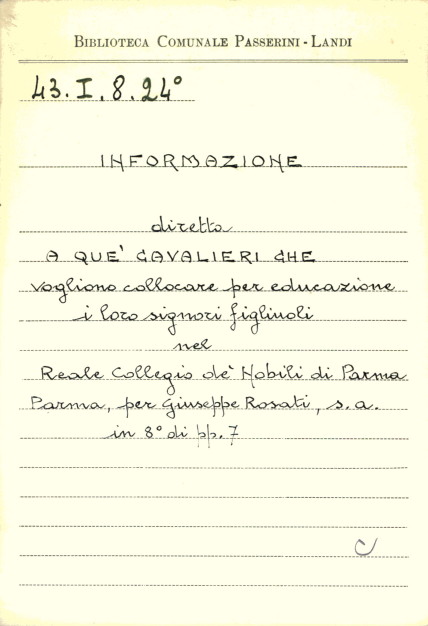 BIBLIOTECA COMUNALE PASSERINI - LANDI
43.I.8.24°
INFORMAZIONE
diretta
A QUE' CAVALIERI CHE
vogliono collocare per educazione
i loro signori figliuoli
nel
Reale Collegio de' Nobili di Parma
Parma, per Giuseppe Rosati, s.a.
in 8° di pp. 7
C